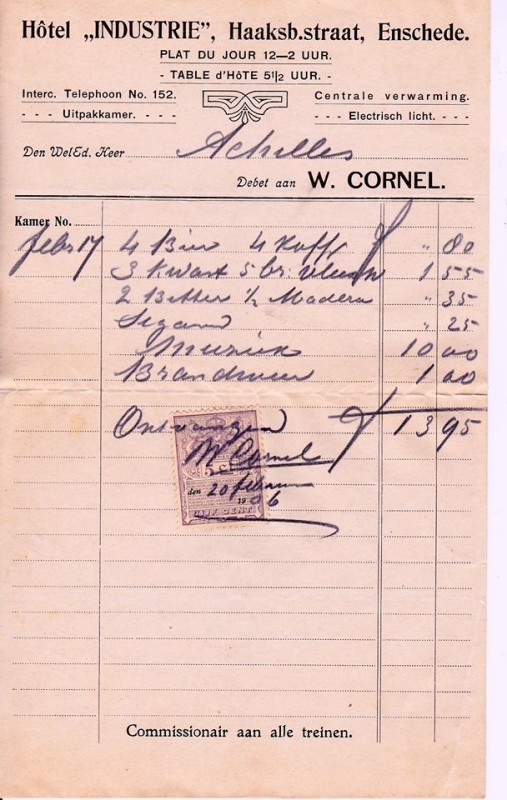 Hôtel „INDUSTRIE”, Haaksb.straat, Enschede.
PLAT DU JOUR 12—2 UUR.
- TABLE d'HÔTE 5½ UUR. -
Interc. Telephoon No. 152. Centrale verwarming.
- - - Uitpakkamer. - - - - - - Electrisch licht. - - -
Den WelEd. Heer Achilles
Debet aan W. CORNEL.
Kamer No.
febr 17 4 Bier 4 Koffi f „ 80
3 Kwast 5 br: 1 55
2 Bitter ½ Madera „ 35
„ 25
Muziek 10 00
1 00
Ontvangen f 13 95
W Cornel
5 CT
den 20 1906
VIJF CENT
Commissionair aan alle treinen.